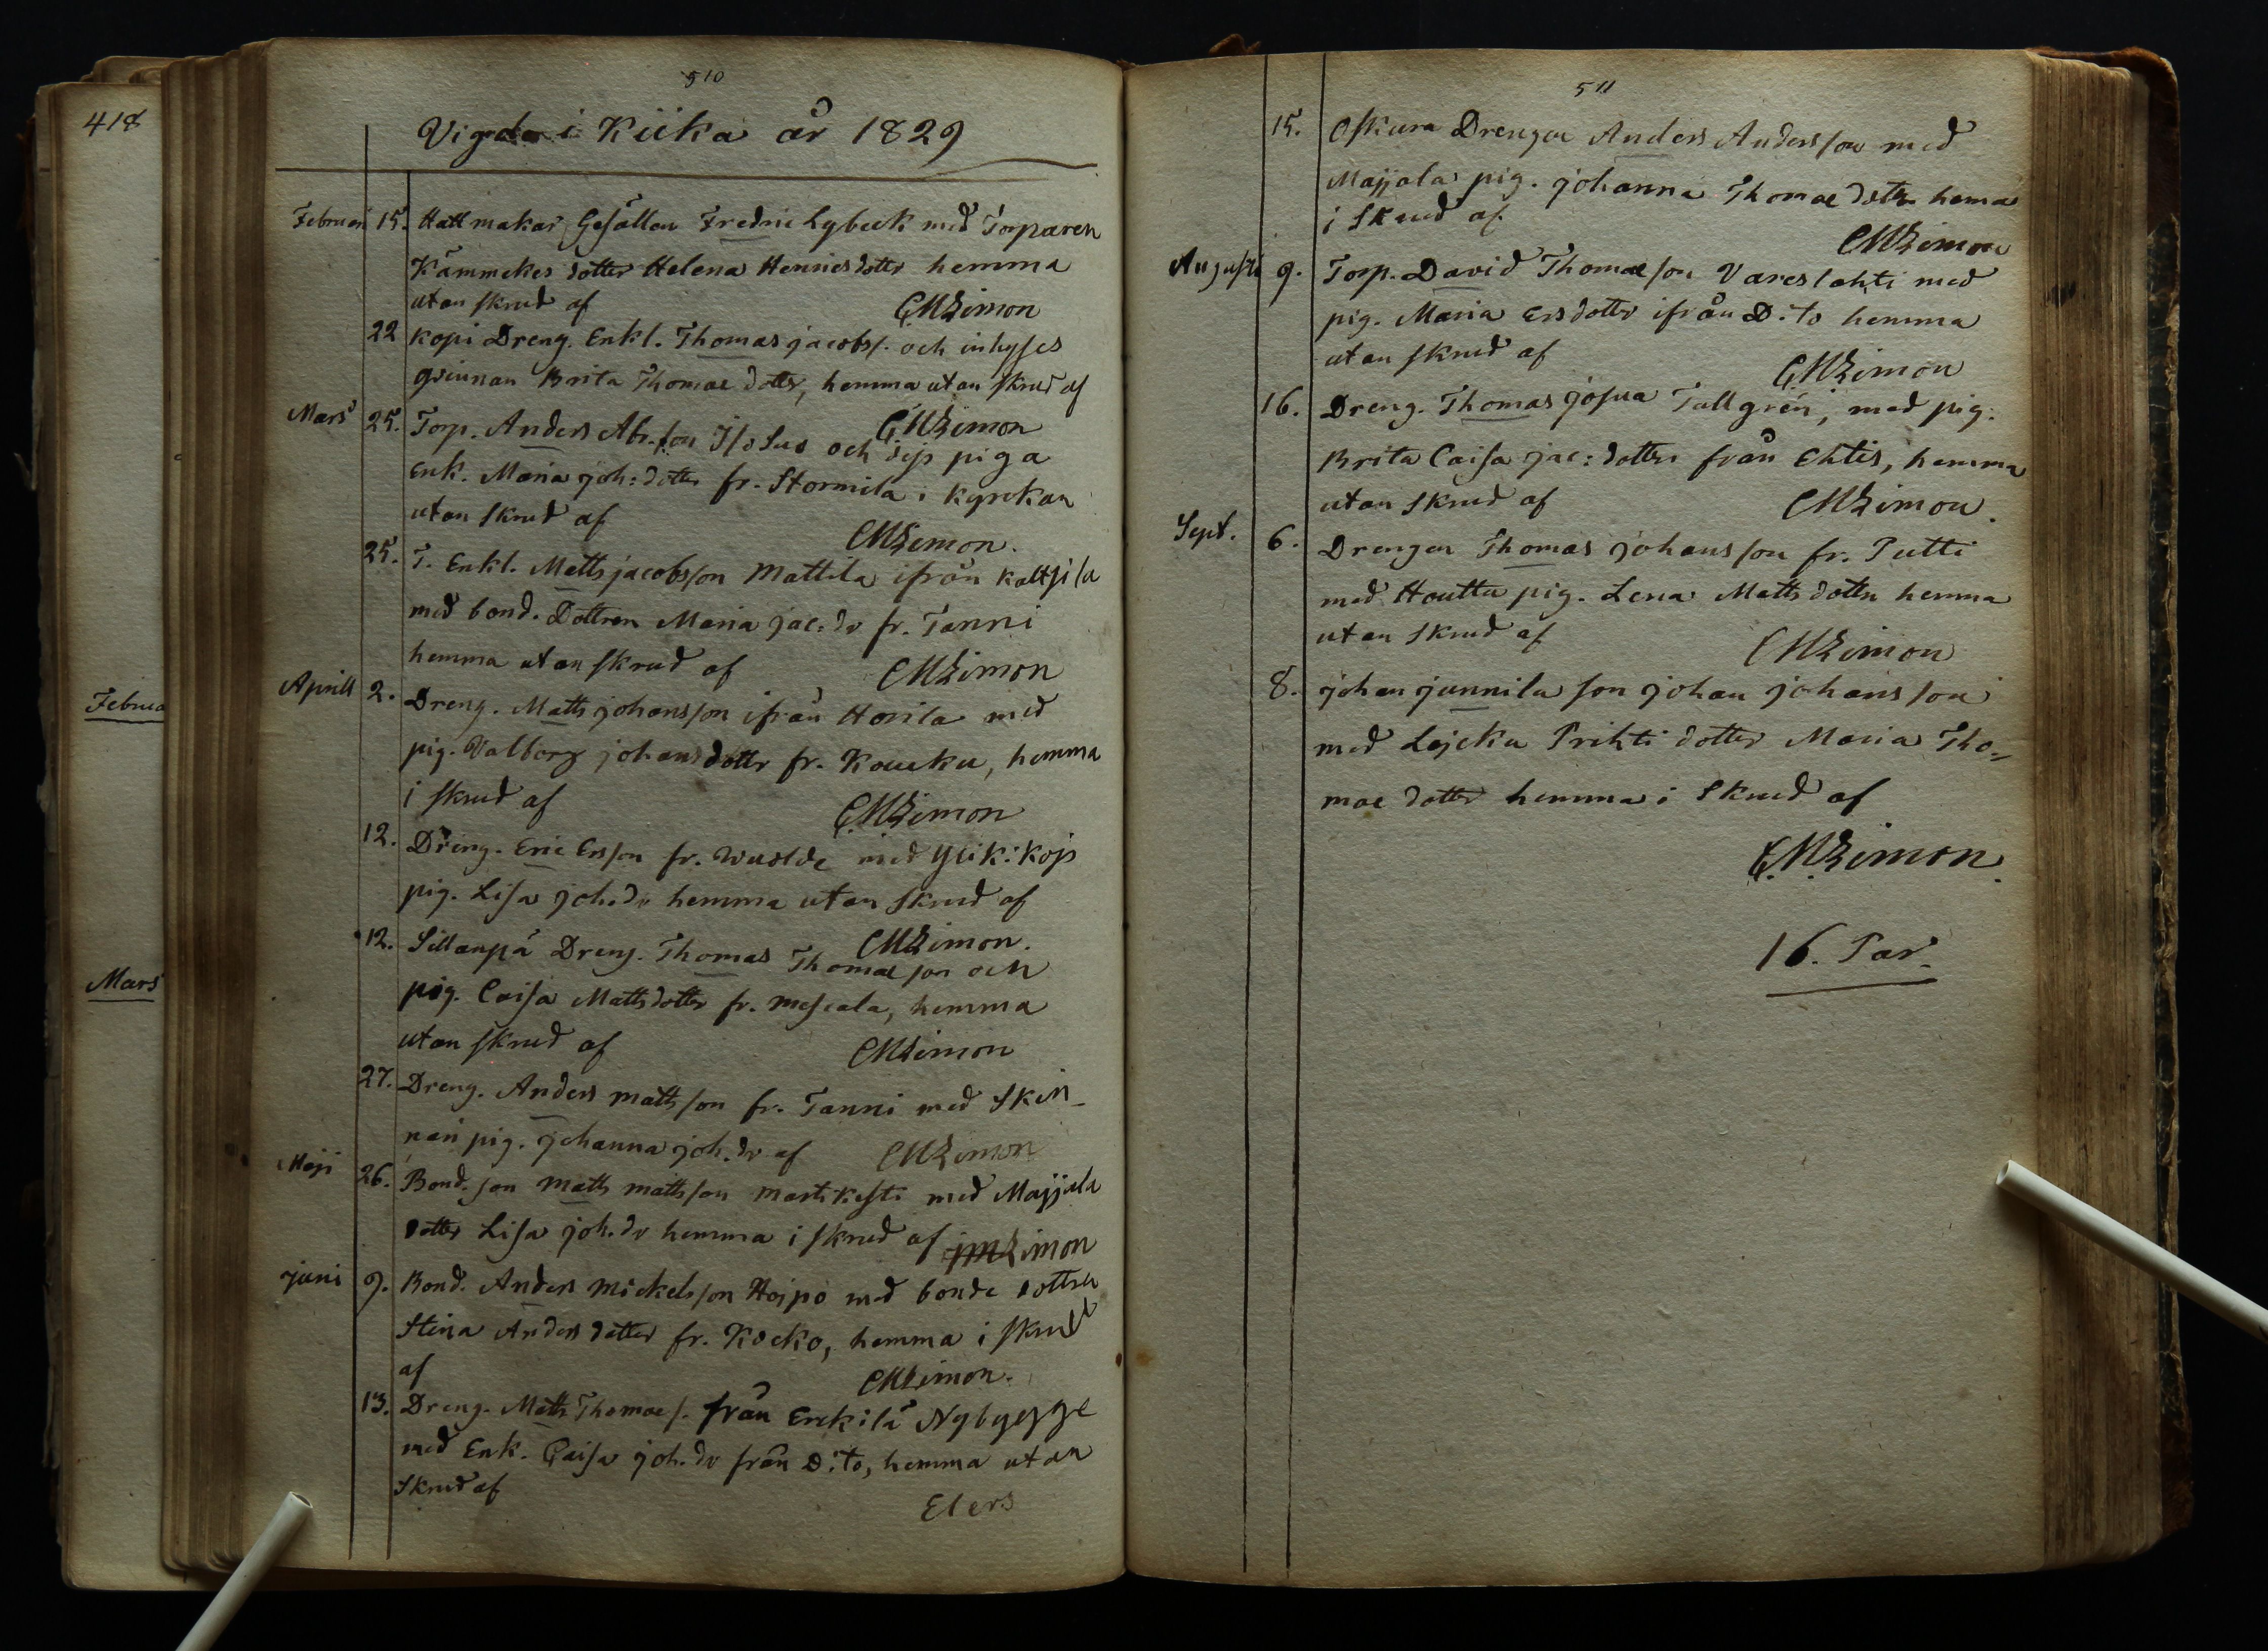 418
Februa
Mars
510
Vigda i Kiika år 1829
Februari 15. Hattmakar Gesällen Fredric Lybeck med Torparen
Kämmekes dotter Helena Henricsdotter hemma
utan skrud af CMZimon
22 Kopi Dreng. Enkl. Thomas jacobs/. och inhyses
qvinnan Brita Thomae dotter, hemma utan skrud af
CMZimon
Mars 25. Torp. Anders Abr.son Iso Suo och dess piga
Enk. Maria joh: dotter fr. Stormila i Kyrckan
utan skrud af CMZimon.
25. T. Enkl. Matts jacobsson Mattila ifrån Kaltsila
med bond. Dottren Maria jac: dr fr. Tanni
hemma utan skrud af CMZimon
Aprill 2. Dreng. Matts johansson ifrån Horila med
pig. Valborg johansdotter fr. Koucku, hemma
i skrud af CMZimon
12. Dreng. Eric Ersson fr. Wuolde med Yli K: Kojs
pig. Lisa joh. dr hemma utan skrud af
CMZimon.
12. Sillanpä Dreng. Thomas Thomae son och
pig. Caisa Mattsdotter fr. Mescala, hemma
utan skrud af CMZimon
27. Dreng. Anders Mattsson fr. Tanni med Skin-
nari pig. johanna joh. dr af CMZimon
Maji 26. Bond. son Matts Mattsson Martikesti med Majjala
dotter Lisa joh. dr hemma i skrud af CMZimon
juni 9. Bond. Anders Mickelsson Hoipo med bonde dottren
Stina Anders dotter fr. Kocko, hemma i skrud
af CMZimon.
13. Dreng. Matts Thomae s. från Erckilä Nybygge
med Enk. Caisa joh. dr från D:to, hemma utan
skrud af Elers
511
15. Oskura Drengen Anders Andersson med
Majjala pig. johanna Thomae dotter hema
i skrud af CMZimon
Augusti 9. Torp. David Thomaeson Vareslahti med
pig. Maria Ersdotter ifrån D:to hemma
utan skrud af CMZimon
16. Dreng. Thomas josua Tallgrén, med pig.
Brita Caisa jac: dotter från Ehtis, hemma
utan skrud af CMZimon.
Sept. 6. Drengen Thomas johansson fr. Putti
med Houttu pig. Lena Matts dotter hemma
utan skrud af CMZimon
8. johan junnila son johan johansson
med Lejcku Prihti dotter Maria Tho=
mae dotter hemma i skrud af
C.M.Zimon.
16. Par.